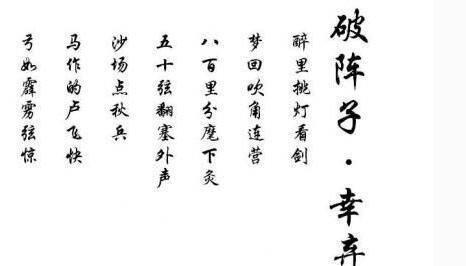 破阵子·幸弃
醉里挑灯看剑
梦回吹角连营
八百里分麾下灸
五十弦翻塞外声
沙场点秋兵
马作的卢飞快
弓如霹雳弦惊